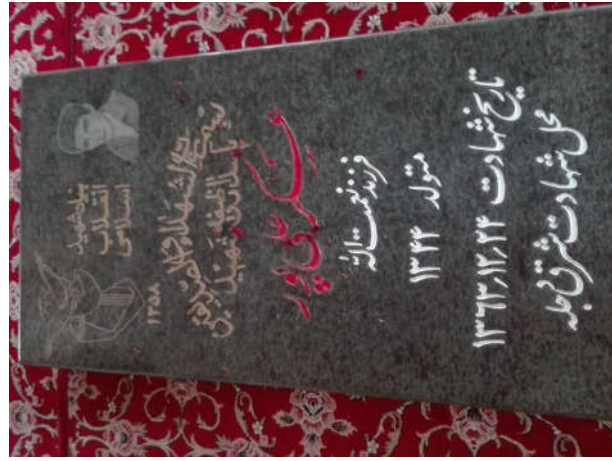 بنیاد شهید
انقلاب
اسلامی
۱۳۵۸
بسم رب الشهداء و الصدیقین
عسکر علی پور
فرزند نعمت الله
متولد ۱۳۴۴
تاریخ شهادت ۱۳۶۳،۱۲،۲۴
محل شهادت شرق دجله